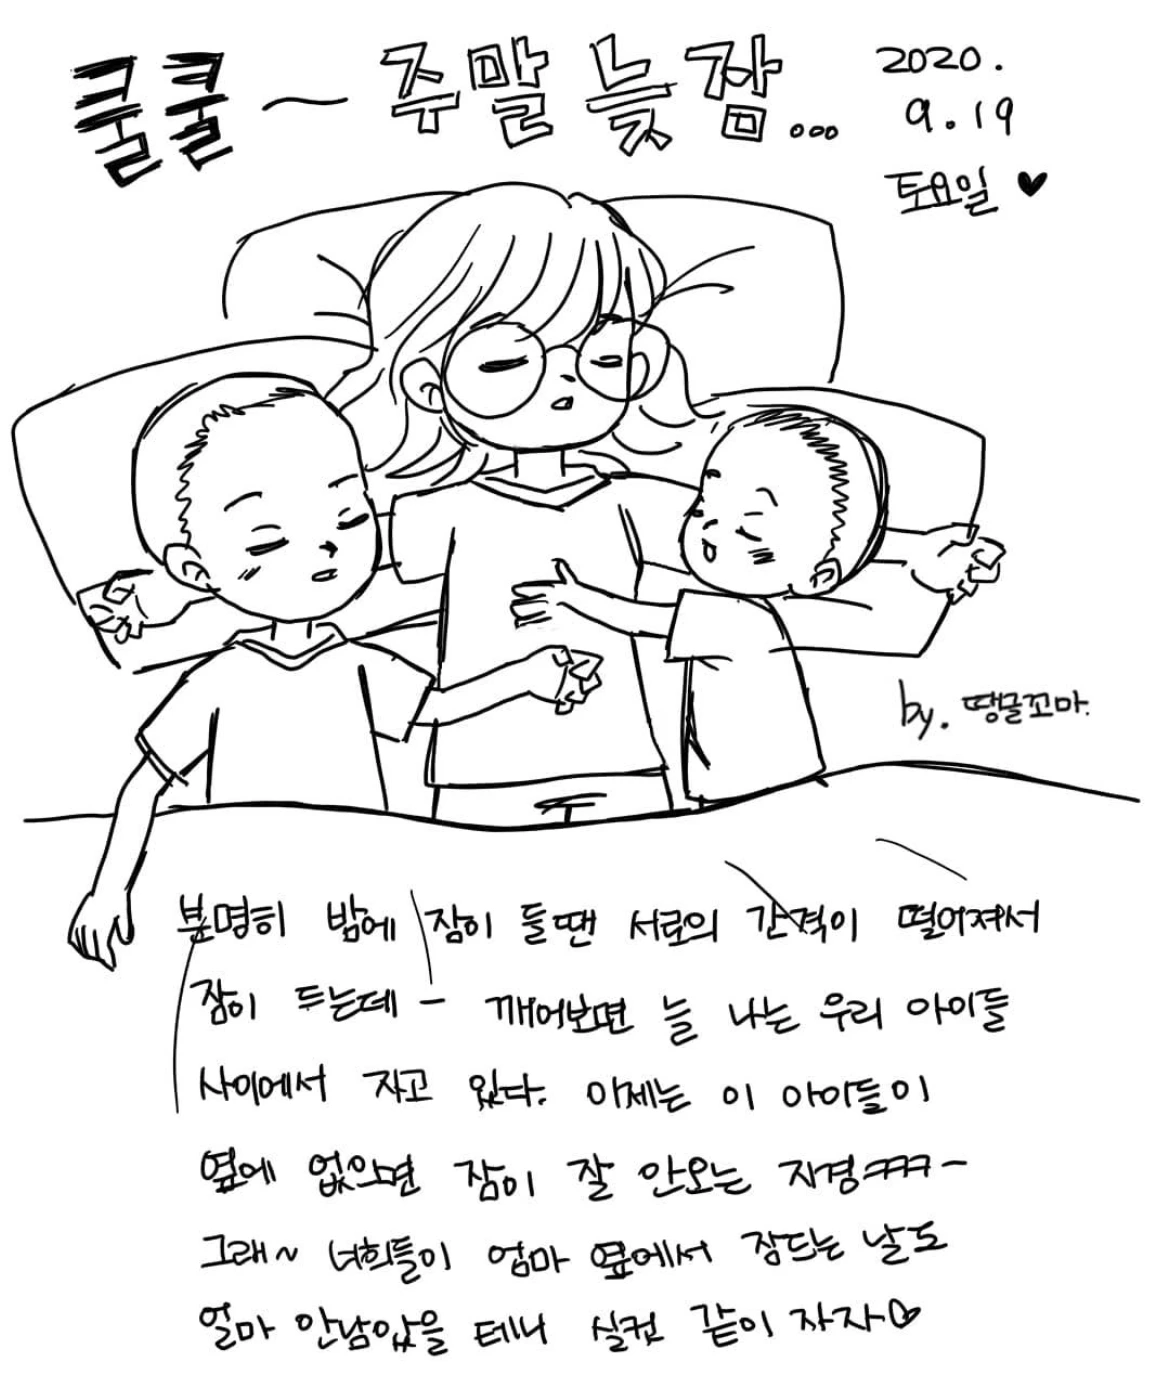 쿨쿨~ 주말 늦잠...
2020.
9.19
토요일 ♥
by. 땡글꼬마.
분명히 밤에 잠이 들땐 서로의 간격이 떨어져서
잠이 두는데 - 깨어보면 늘 나는 우리 아이들
사이에서 자고 있다. 이제는 이 아이들이
옆에 없으면 잠이 잘 안오는 지경ㅋㅋㅋ-
그래~ 너희들이 엄마 옆에서 잠드는 날도
얼마 안남았을 테니 실컷 같이 자자♡